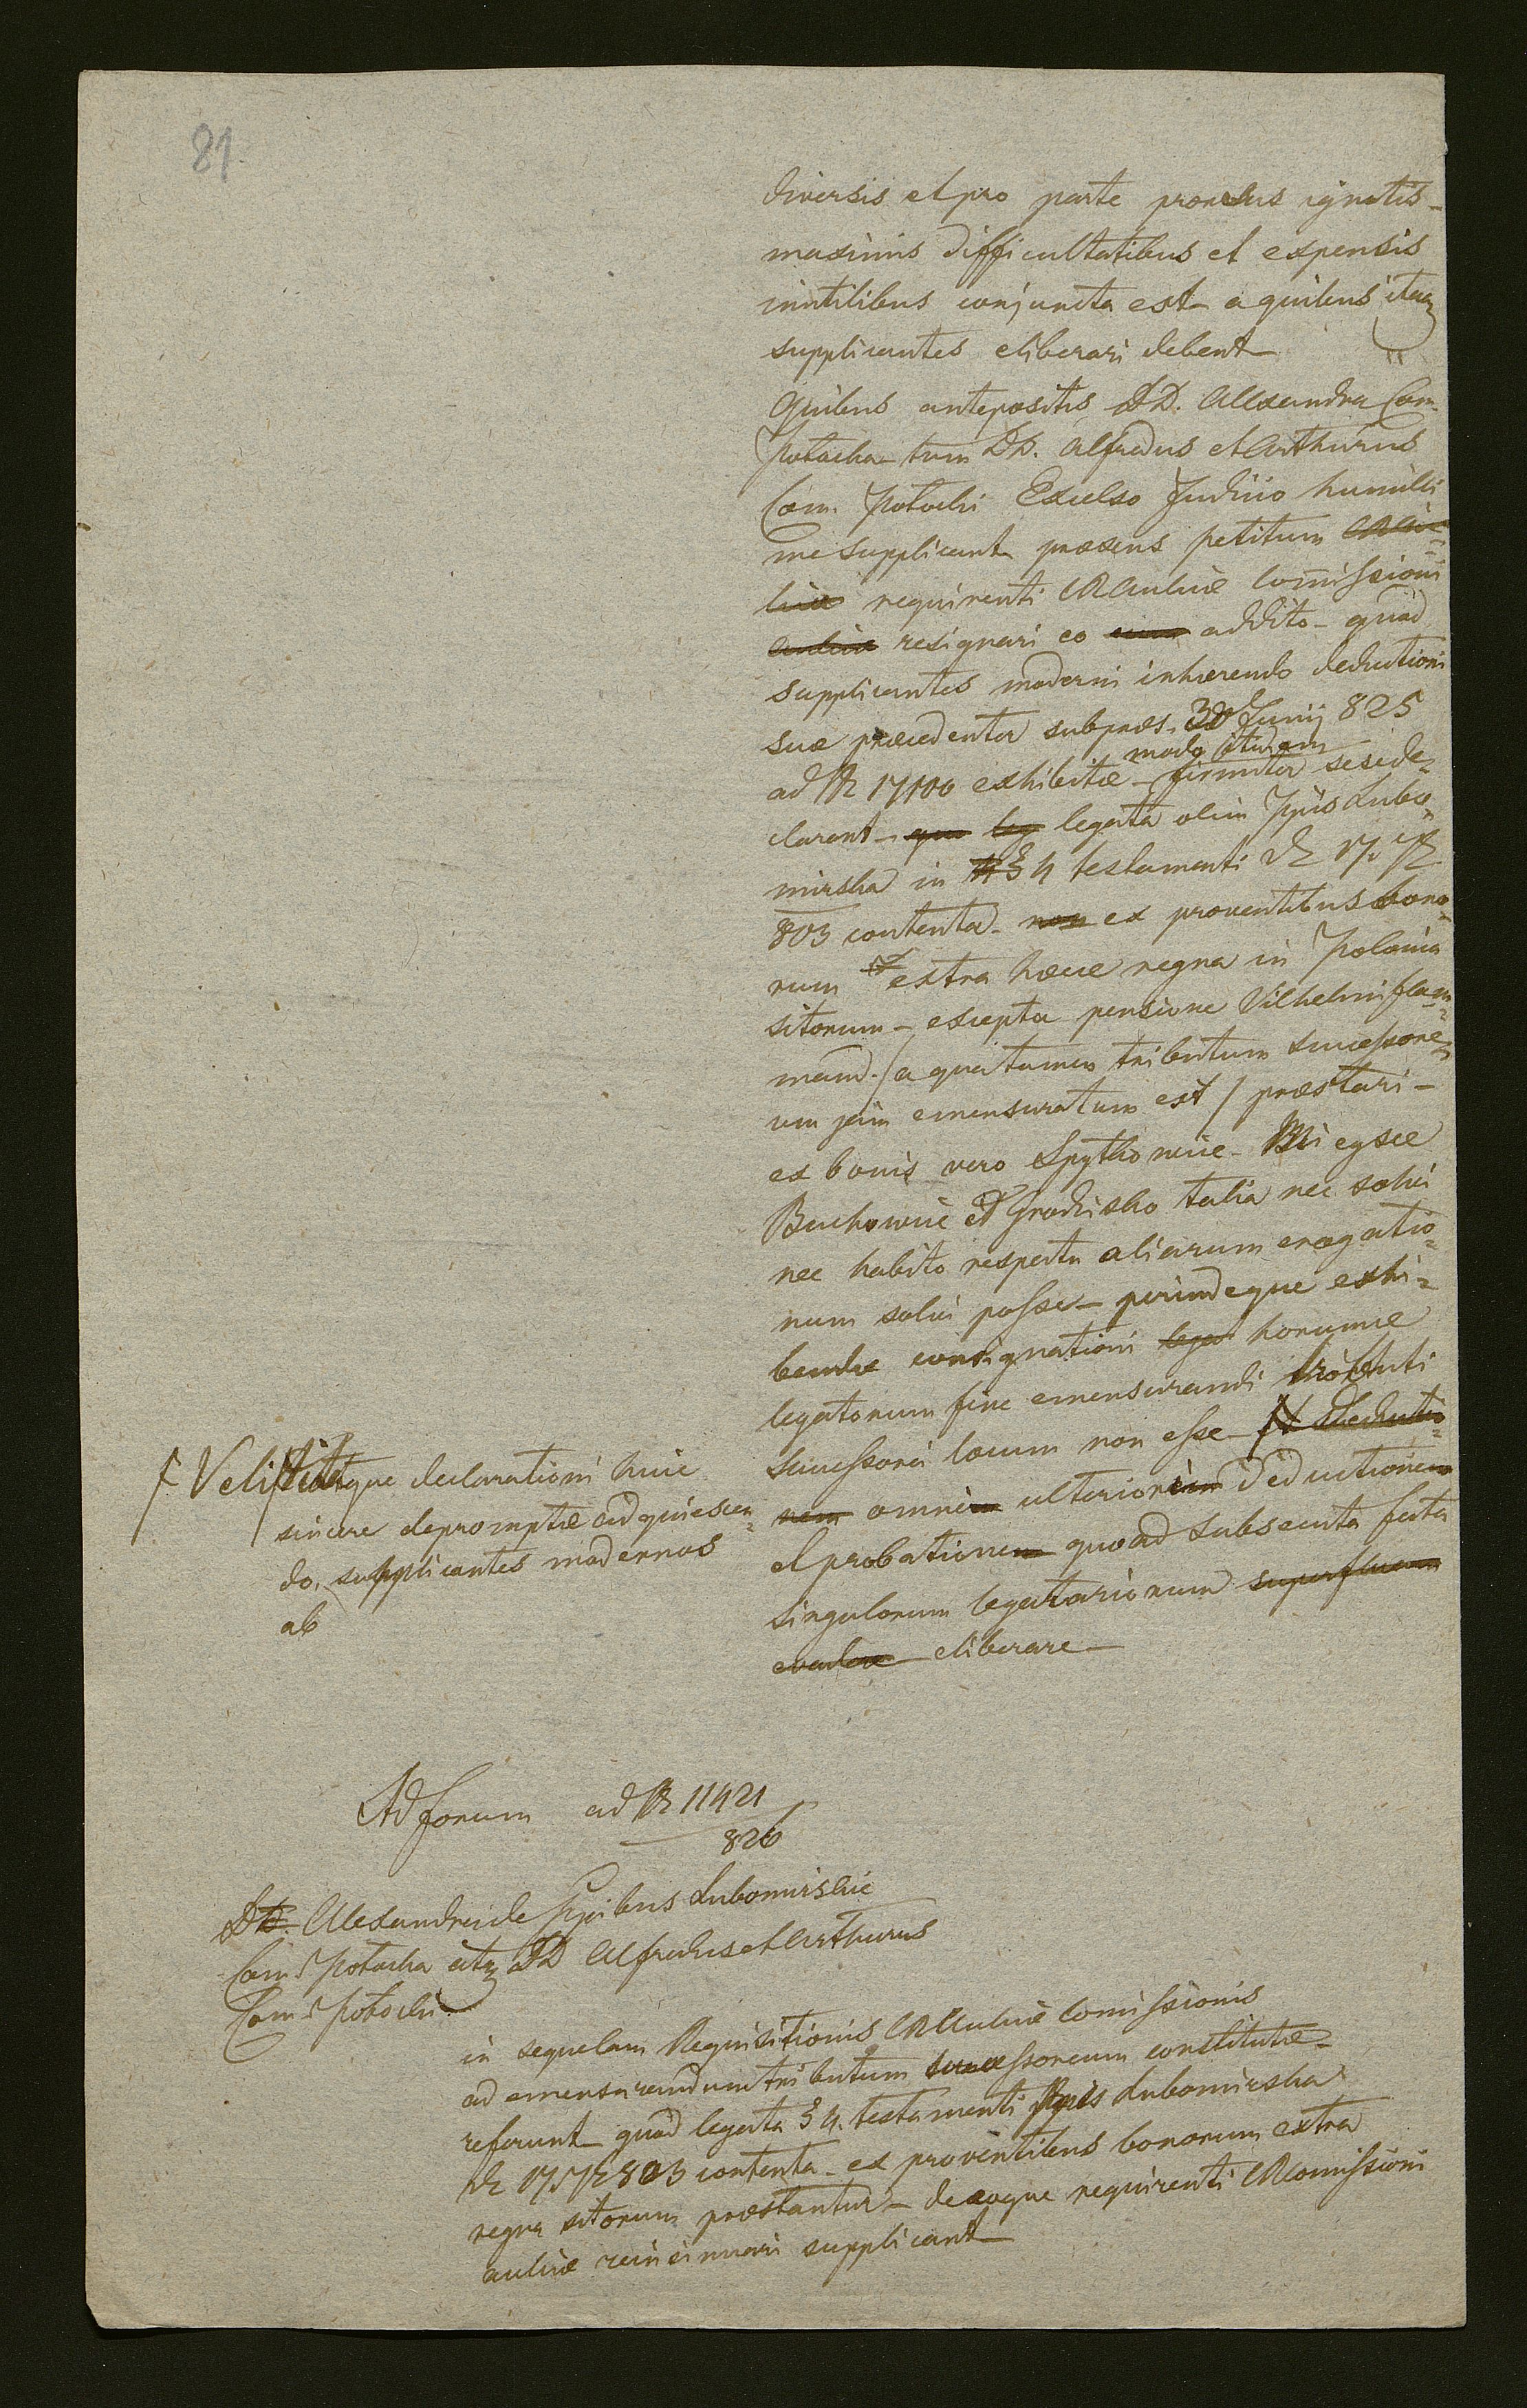 81.
diversis et pro parte prorsus ignotis –
maximis difficultatibus et expensis
inutilibus conjuncta est a quibus itaq
supplicantes eliberari debent
Quibus antepositis DD. Alexandra Com.
Potocka tum DD. Alfredus et Arthurus
Com. Potocki Excelso Judicio humilli
me supplicant praesens petitum
requirenti CR Aulicae Commissioni
resignari eo addito – quod
supplicantes moderni inhaerendo deductioni
suae praecedenter subpraes. 30 Junij 825
ad Nr 17100 exhibitae – modo itidem firmiter sese de=
clarent – legata olim Ppis Lubo=
mirska in § 4 testamenti
803 contenta – ex proventibus bono=
rum extra haece regna in Polonia
sitorum – excepta pensione Vilhelmi Flam=
mand. / a qua tamen tributum successore=
um jam emensuratum est / praestari –
ex bonis vero Spytkowice –
Bachowice et Grodzisko talia nec solvi
nec habito respectu aliarum erogatio=
num solvi posse – perindeque exhi=
bendae consignationi horumce
legatorum fine emensurandi tributi
successorei locum non esse –
omni ulteriori deductione
et probatione quoad subsecuta fata
singulorum legatariorum
eliberare –
Velitatque declarationi huic
sincere depromptae adquiescen=
do, supplicantes modernos
ab
Ad forum ad Nr 11421
826
D. Alexandra de Ppibus Lubomirskie
Com. Potocka itq DD Alfredus et Arthurus
Com. Potocki
in sequelam Requisitionis CR Aulicae Comissionis
ad emensurandum tributum successoreum constitutae –
referunt quod legata § 4. testamenti Ppis Lubomirska
803 contenta – ex proventibus bonorum extra
regna sitorum praestantur – deeoque requirenti CR Comissioni
aulicae reinsinuari supplicant